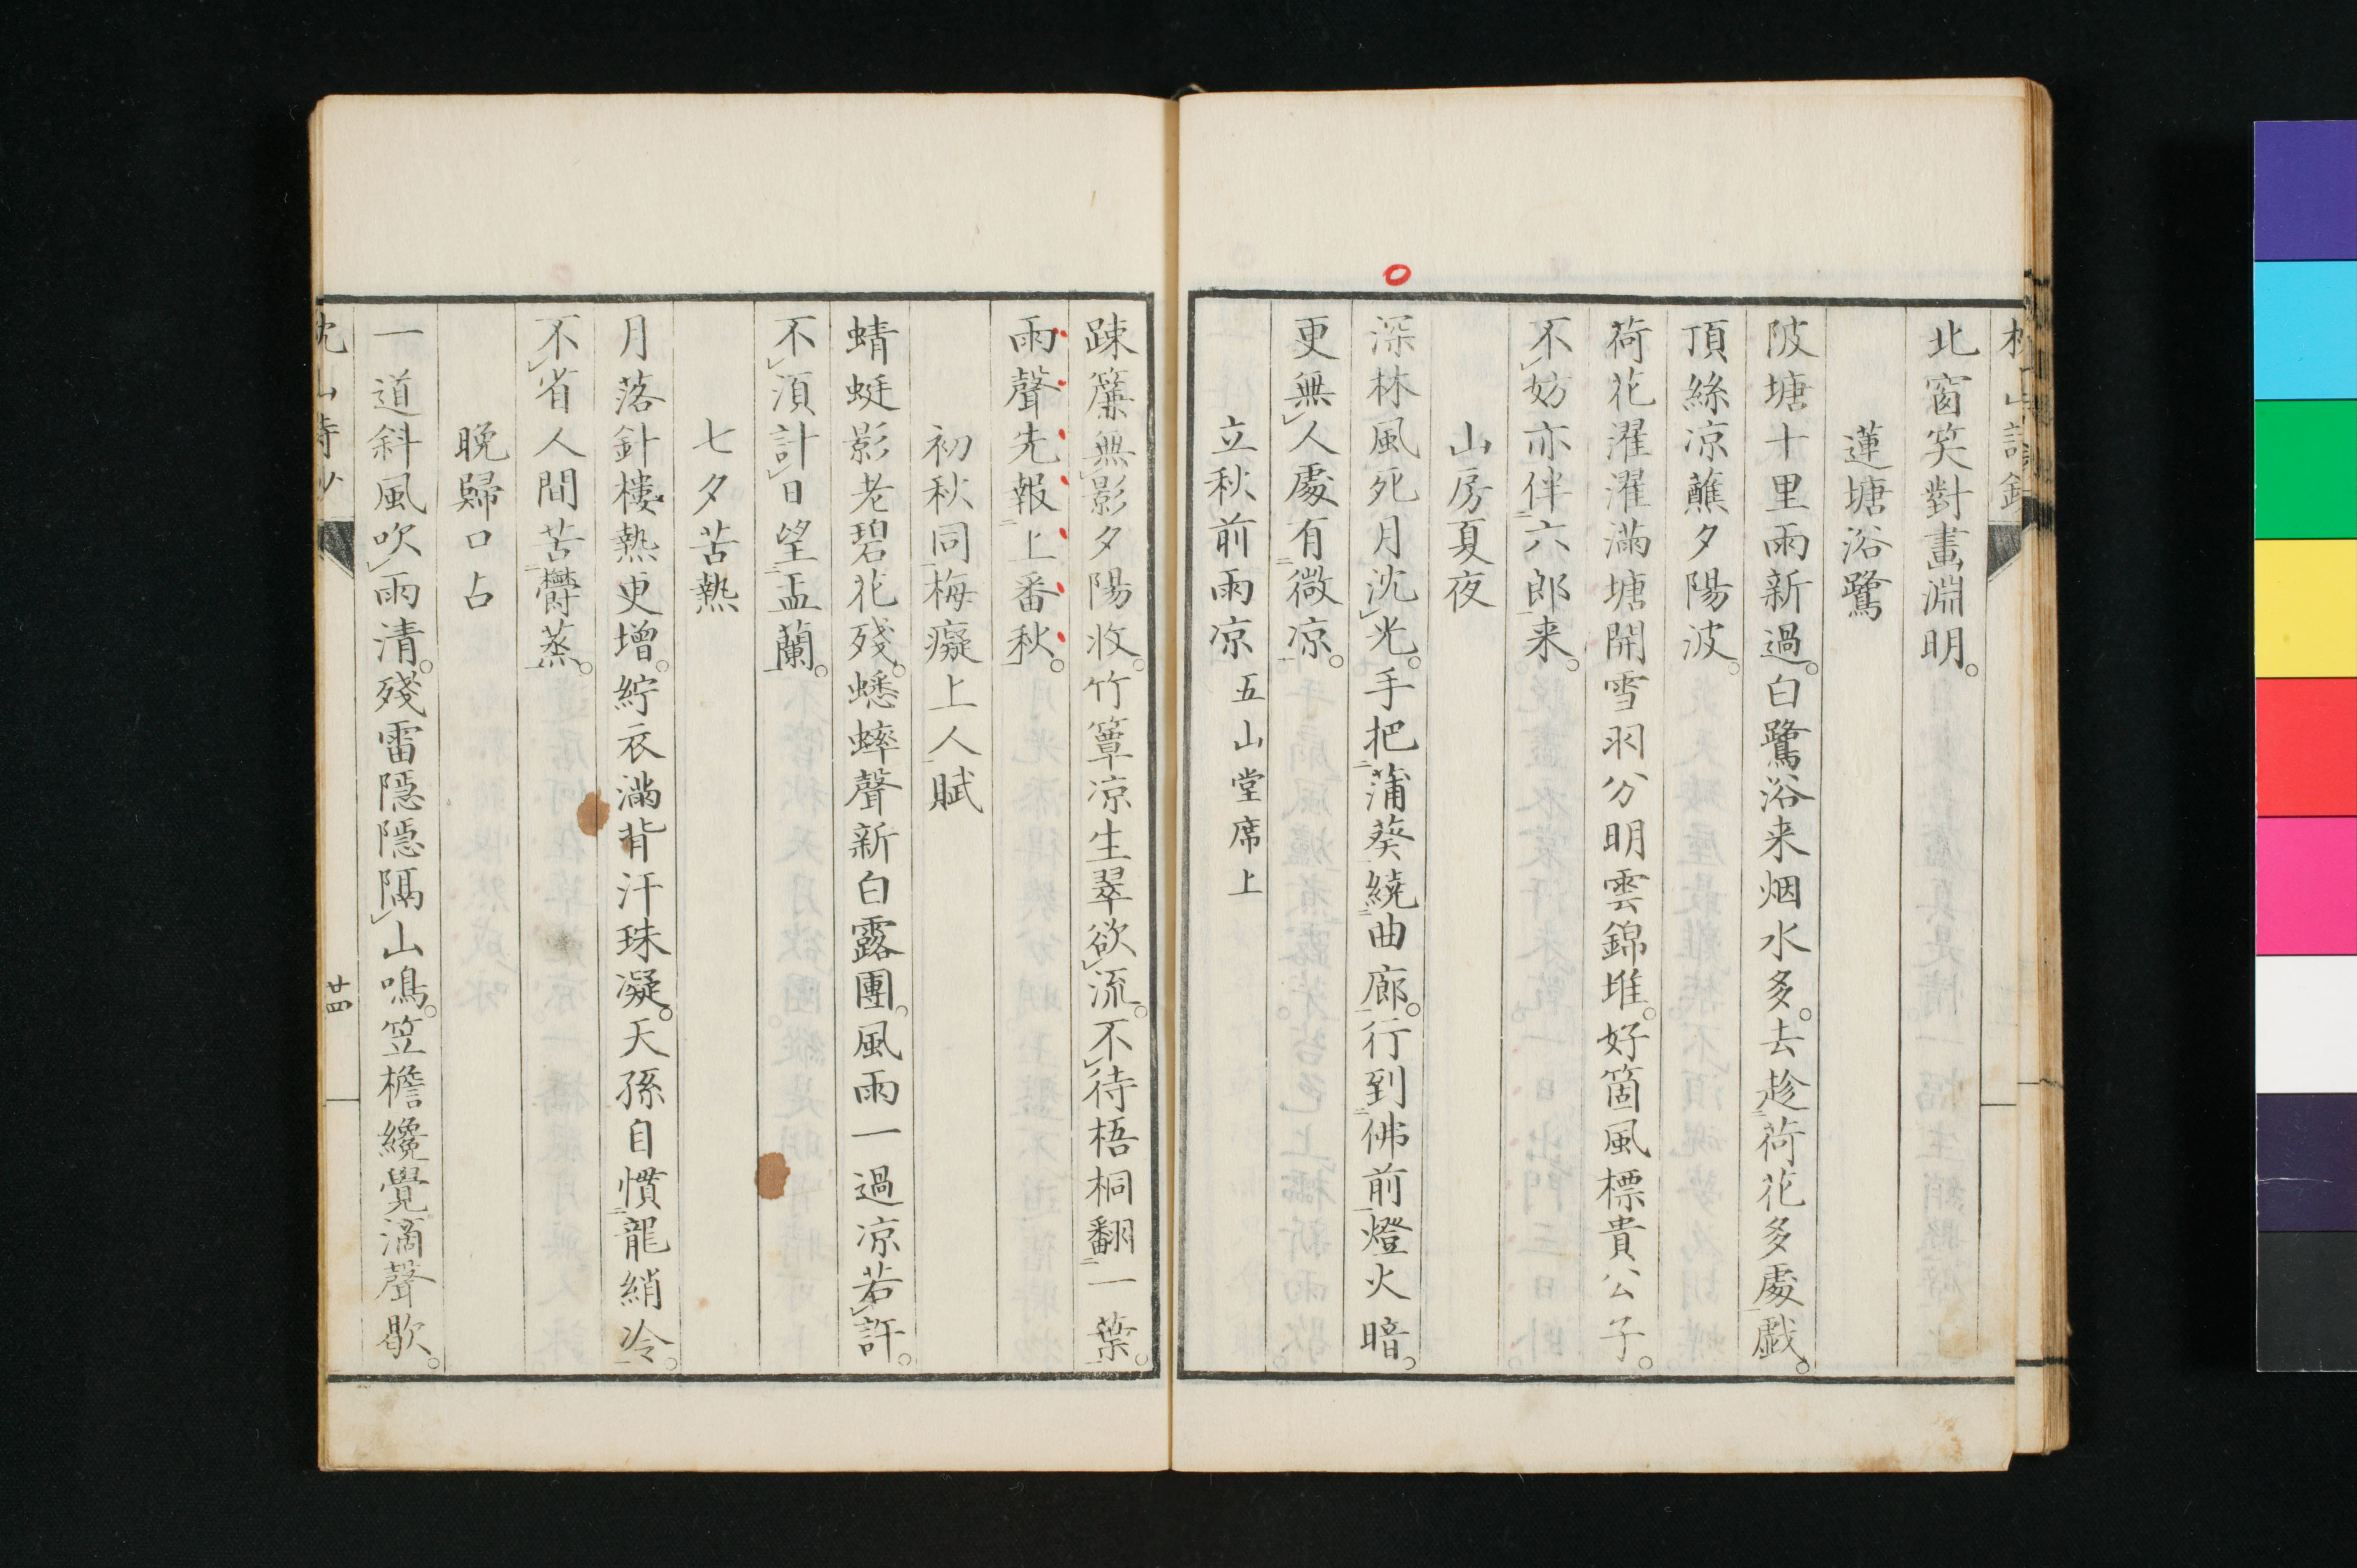 北窗笑對畫淵明。
蓮塘浴鷺
陂塘十里雨新過。白鷺浴来烟水多。去趁荷花多處戯。
頂絲凉蘸夕陽波。
荷花濯濯滿塘開雪羽分明雲錦堆。好箇風標貴公子。
不妨亦伴六郎来。
山房夏夜
深林風死月沈光。手把蒲葵繞曲廊。行到佛前燈火暗。
更無人處有微凉。
立秋前雨凉 五山堂席上
踈簾無影夕陽收。竹簟凉生翠欲流。不待梧桐翻一葉。
雨聲先報上番秋。
初秋同梅癡上人賦
蜻蜓影老碧花殘。蟋蟀聲新白露團。風雨一過凉若許。
不須計日望盂蘭。
七夕苦熱
月落針樓熱更增。紵衣滿背汗珠凝。天孫自慣龍綃冷。
不省人間苦欝蒸。
晩歸口占
一道斜風吹雨清。殘雷隠隠隔山鳴。笠檐纔覺滴聲歇。
廿四